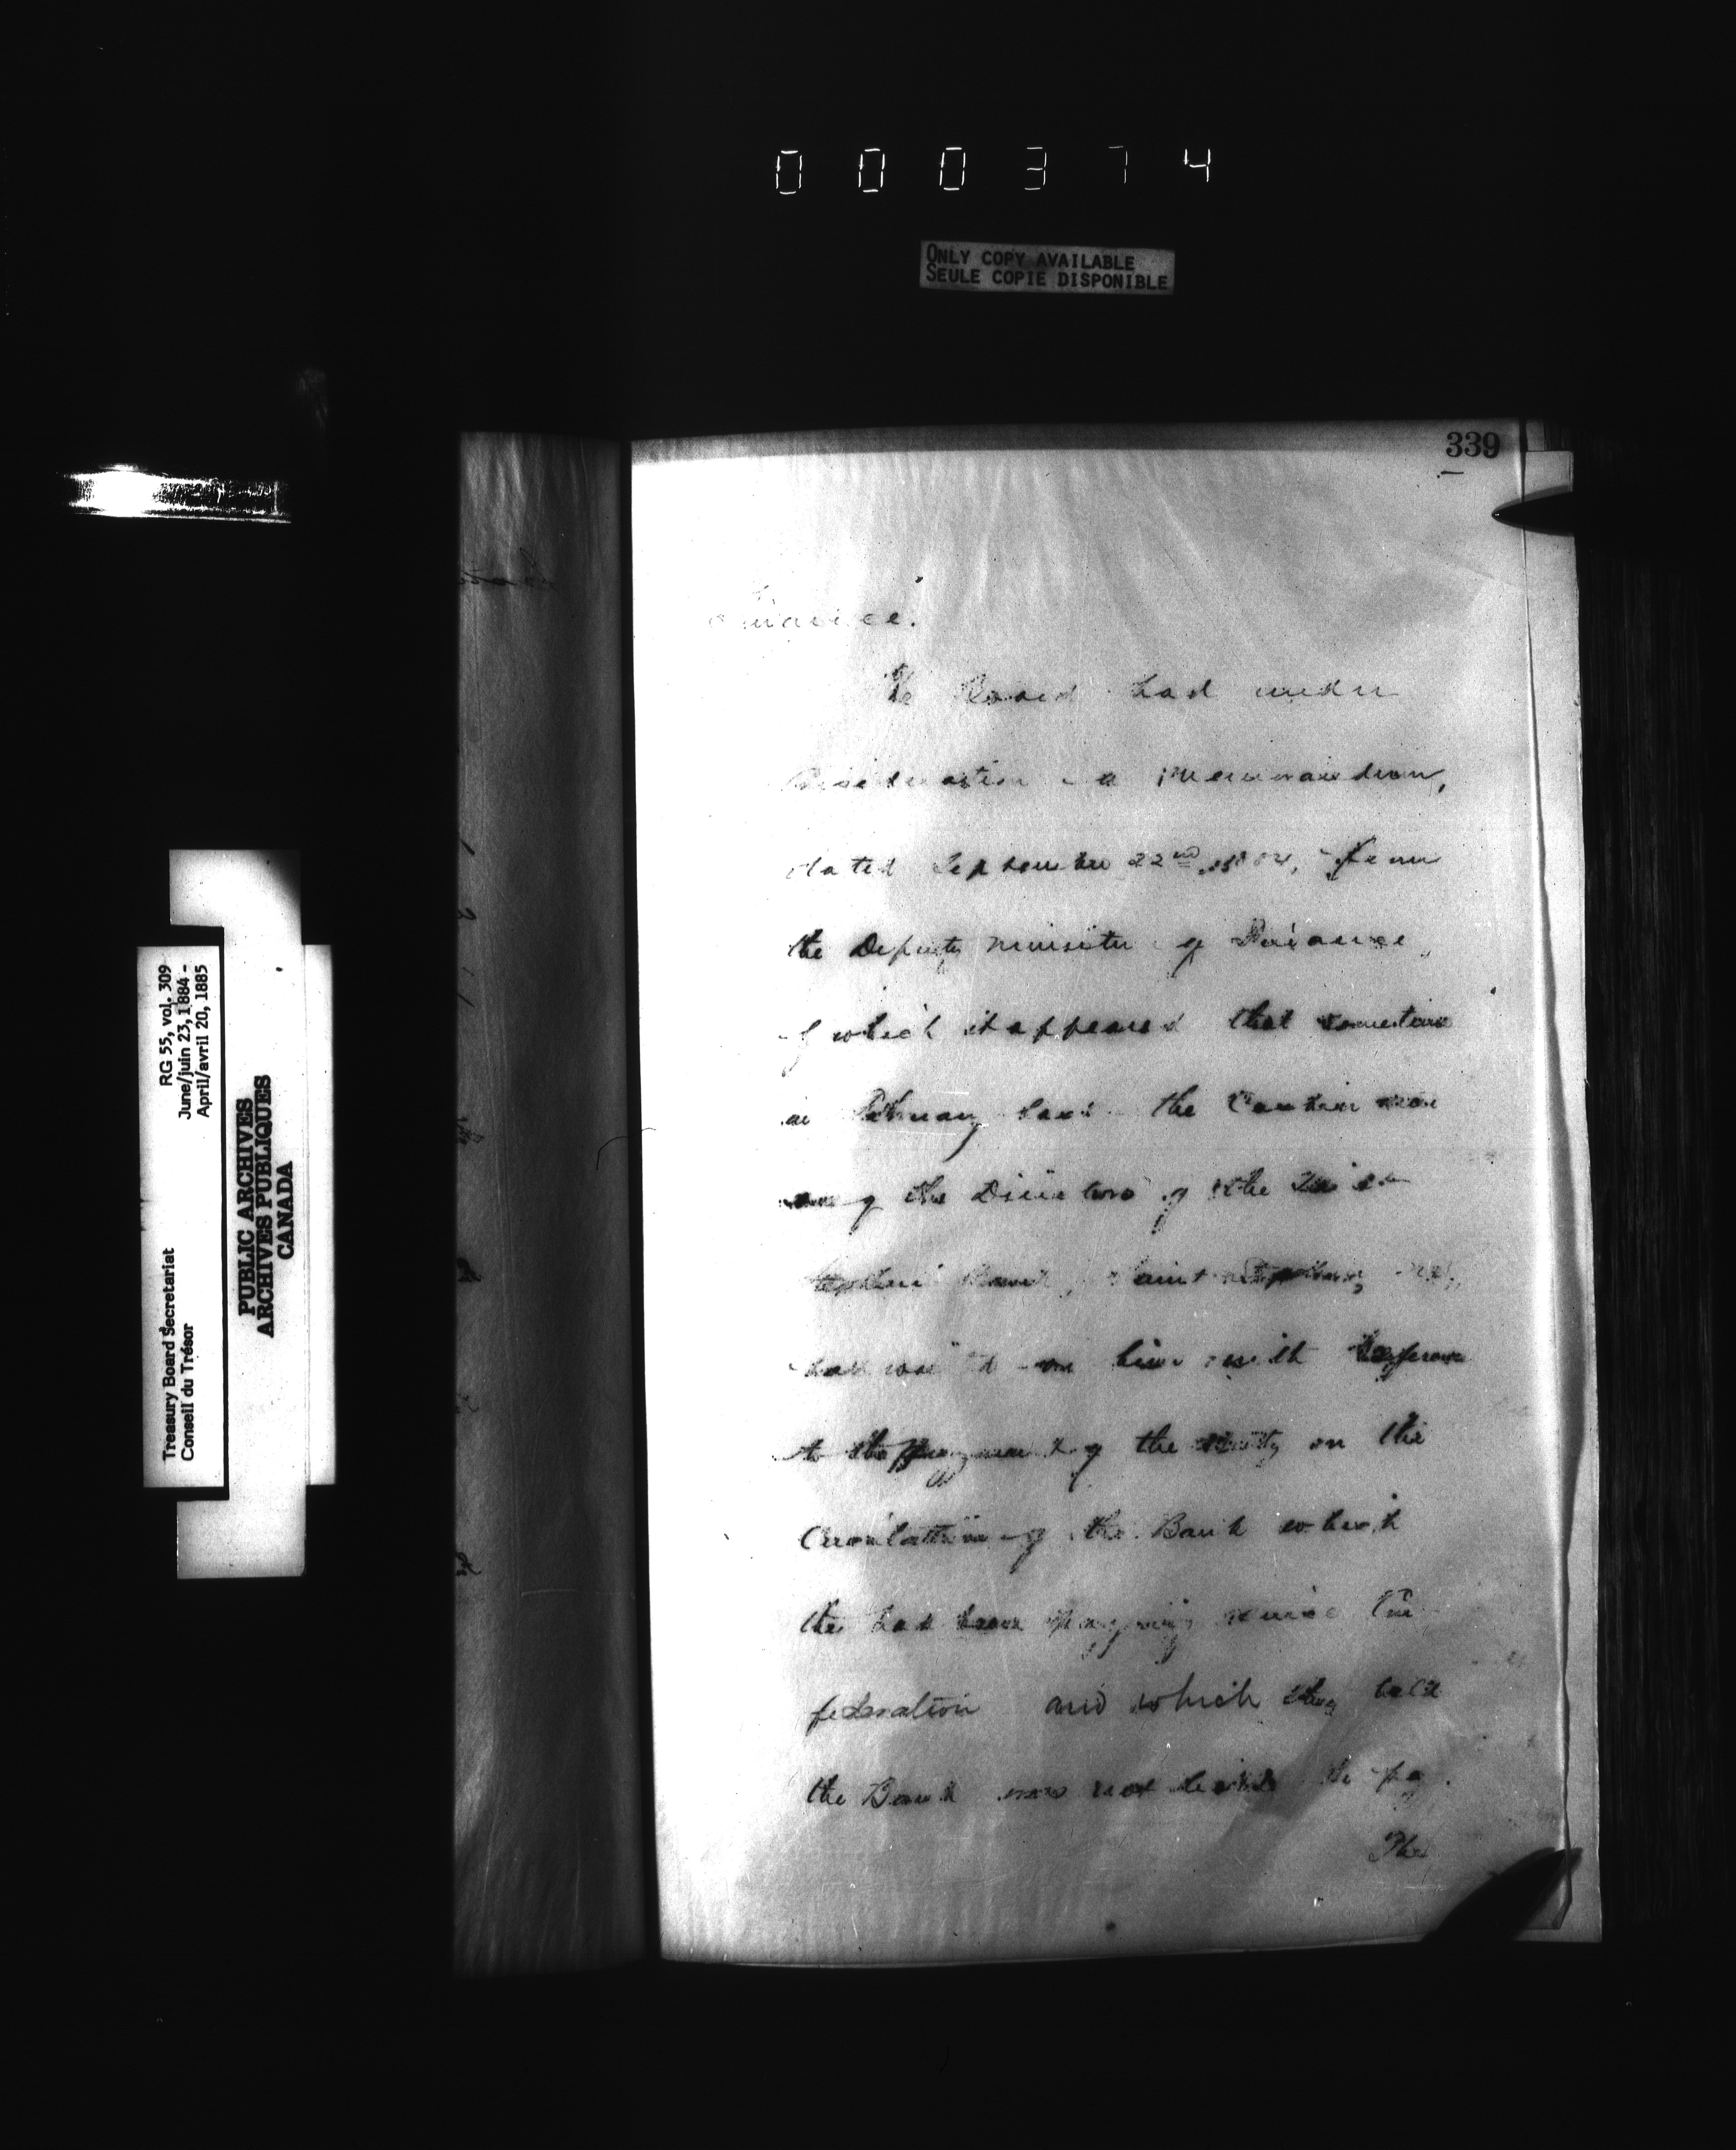 000374
ONLY COPY AVAILABLE
SEULE COPIE DISPONIBLE
339
Finance.
The Board had under
Consideration a memorandum,
dated September 22nd 1884, from
the Deputy Minister of Finance,
of which it appeared that sometime
in February last the
of the Directors of the
Bank, Saint
had on him with
to the payment of the on the
Circulation of the Bank which
the had been paying since Con
federation and which they held
the Bank was not to pay.
The
RG 55, vol. 309
June/juin 23, 1884 -
April/avril 20, 1885
Treasury Board Secretariat
Conseil du Trésor
PUBLIC ARCHIVES
ARCHIVES PUBLIQUES
CANADA